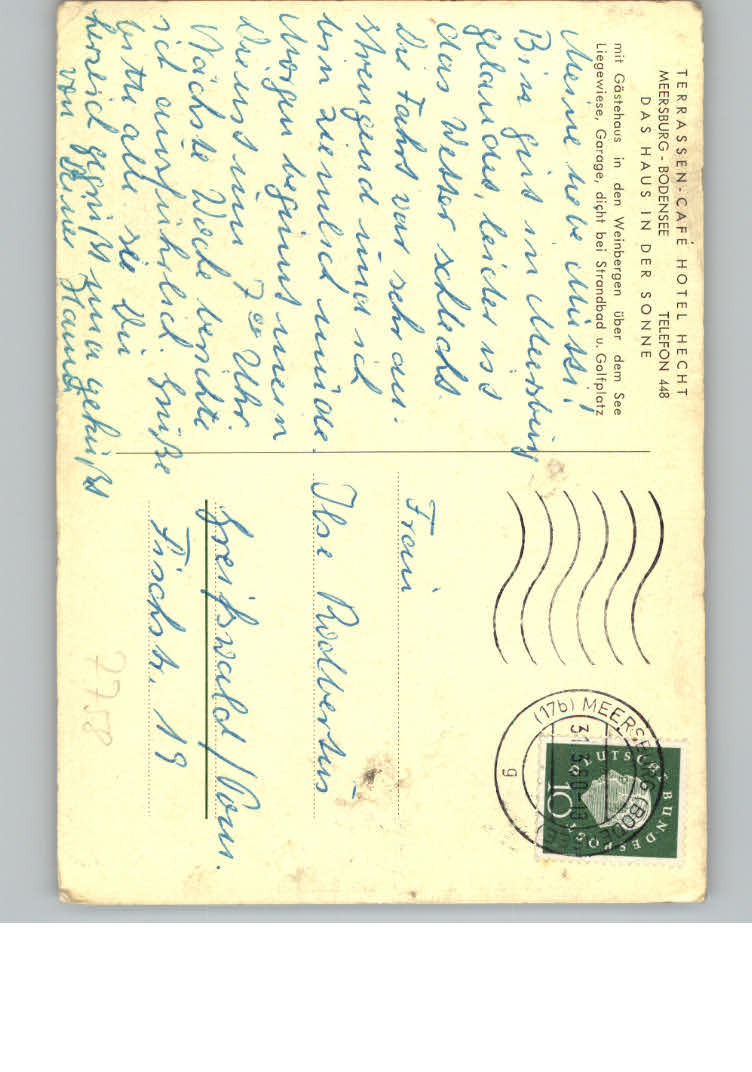 TERRASSEN-CAFÉ HOTEL HECHT
MEERSBURG - BODENSEE TELEFON 448
DAS HAUS IN DER SONNE
mit Gästehaus in den Weinbergen über dem See
Liegewiese, Garage, dicht bei Strandbad u. Golfplatz
Meine liebe Mussi!
Bin gut in Meersburg
gelandet, leider ist
das Wetter schlecht.
Die Fahrt war sehr an-
strengend und ich
bin ziemlich müde.
Morgen beginnt mein
Dienst um 7 00 Uhr.
Nächste Woche berichte
ich ausführlich. Grüße
bitte alle. sei Du
herzlich gegrüßt und geküßt
von Deiner
Frau
Ilse Rodbertus
Greifswald / Pom.
Fischstr. 19
(17b) MEERSBURG (BODENSEE)
31.5.60-18
g
DEUTSCHE BUNDESPOST
10
2758